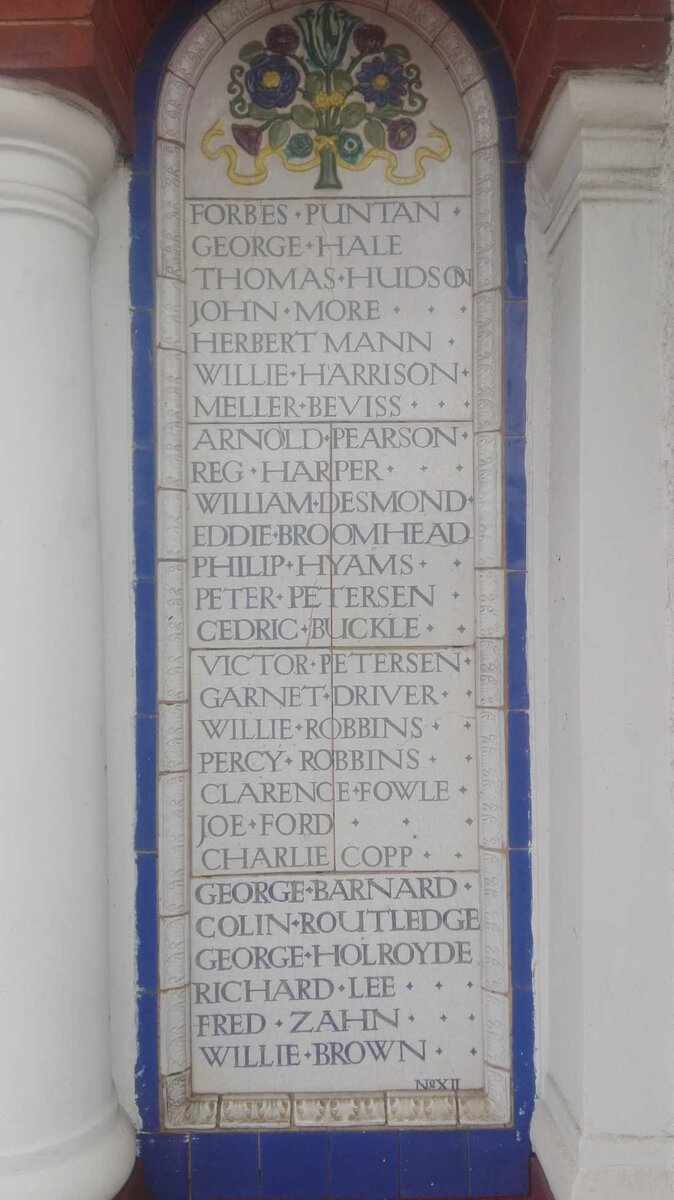 FORBES · PUNTAN ·
GEORGE · HALE
THOMAS · HUDSON
JOHN · MORE · · ·
HERBERT MANN ·
WILLIE · HARRISON ·
MELLER · BEVISS · · ·
ARNOLD · PEARSON ·
REG · HARPER · · ·
WILLIAM · DESMOND ·
EDDIE · BROOMHEAD
PHILIP · HYAMS · ·
PETER · PETERSEN ·
CEDRIC · BUCKLE · ·
VICTOR · PETERSEN ·
GARNET · DRIVER · ·
WILLIE · ROBBINS · ·
PERCY · ROBBINS · ·
CLARENCE · FOWLE ·
JOE · FORD · · ·
CHARLIE COPP · ·
GEORGE · BARNARD ·
COLIN · ROUTLEDGE
GEORGE · HOLROYDE
RICHARD · LEE · · ·
FRED · ZAHN · · ·
WILLIE · BROWN · ·
No XII